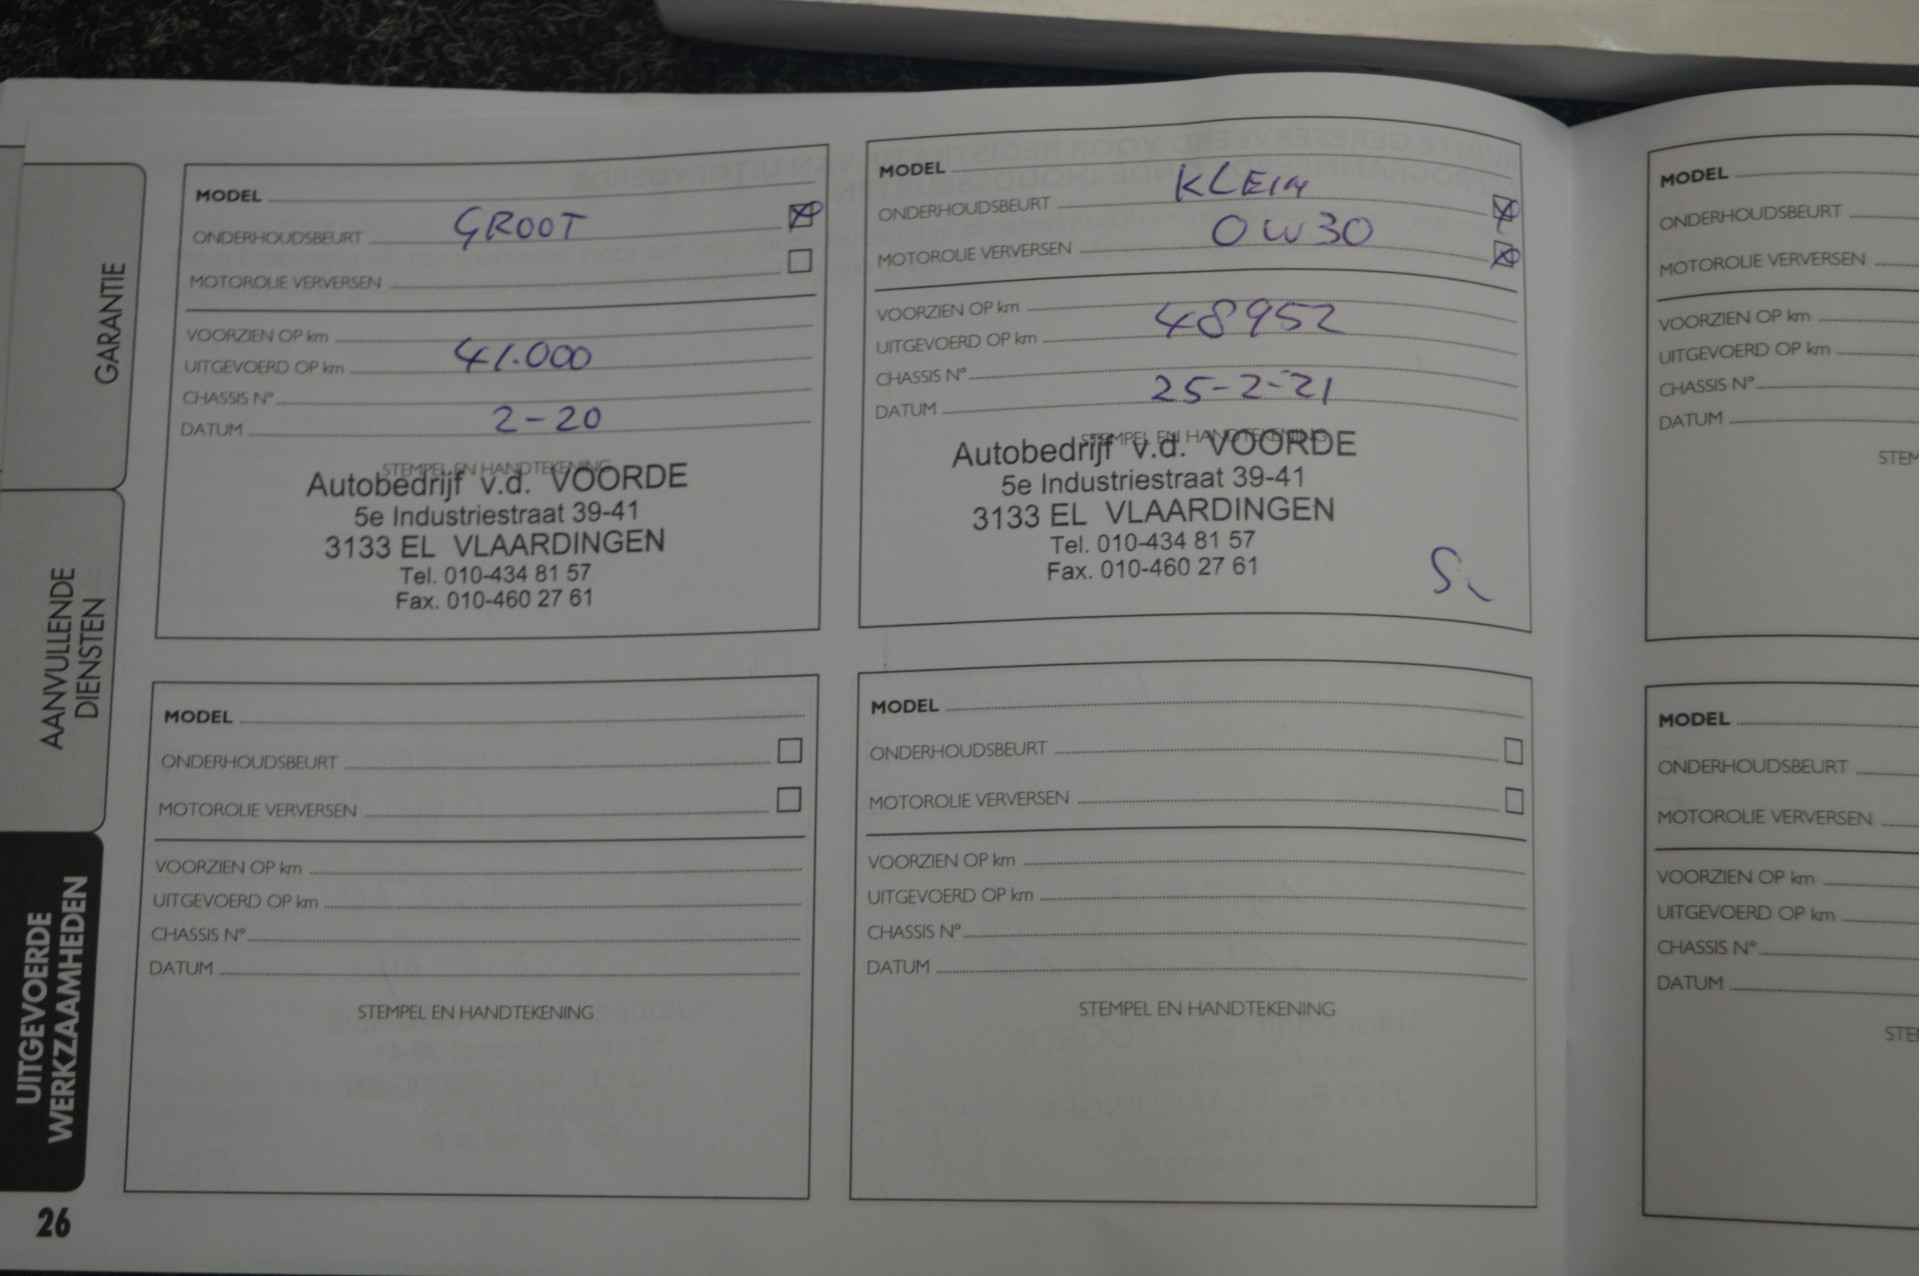 GARANTIE
AANVULLENDE
DIENSTEN
UITGEVOERDE
WERKZAAMHEDEN
26
MODEL
ONDERHOUDSBEURT GROOT
MOTOROLIE VERVERSEN
VOORZIEN OP km
UITGEVOERD OP km 41.000
CHASSIS N°
DATUM 2-20
STEMPEL EN HANDTEKENING
Autobedrijf v.d. VOORDE
5e Industriestraat 39-41
3133 EL VLAARDINGEN
Tel. 010-434 81 57
Fax. 010-460 27 61
MODEL
ONDERHOUDSBEURT KLEIN
MOTOROLIE VERVERSEN 0W30
VOORZIEN OP km
UITGEVOERD OP km 48952
CHASSIS N°
DATUM 25-2-21
STEMPEL EN HANDTEKENING
Autobedrijf v.d. VOORDE
5e Industriestraat 39-41
3133 EL VLAARDINGEN
Tel. 010-434 81 57
Fax. 010-460 27 61
MODEL
ONDERHOUDSBEURT
MOTOROLIE VERVERSEN
VOORZIEN OP km
UITGEVOERD OP km
CHASSIS N°
DATUM
STEM
MODEL
ONDERHOUDSBEURT
MOTOROLIE VERVERSEN
VOORZIEN OP km
UITGEVOERD OP km
CHASSIS N°
DATUM
STEMPEL EN HANDTEKENING
MODEL
ONDERHOUDSBEURT
MOTOROLIE VERVERSEN
VOORZIEN OP km
UITGEVOERD OP km
CHASSIS N°
DATUM
STEMPEL EN HANDTEKENING
MODEL
ONDERHOUDSBEURT
MOTOROLIE VERVERSEN
VOORZIEN OP km
UITGEVOERD OP km
CHASSIS N°
DATUM
STE